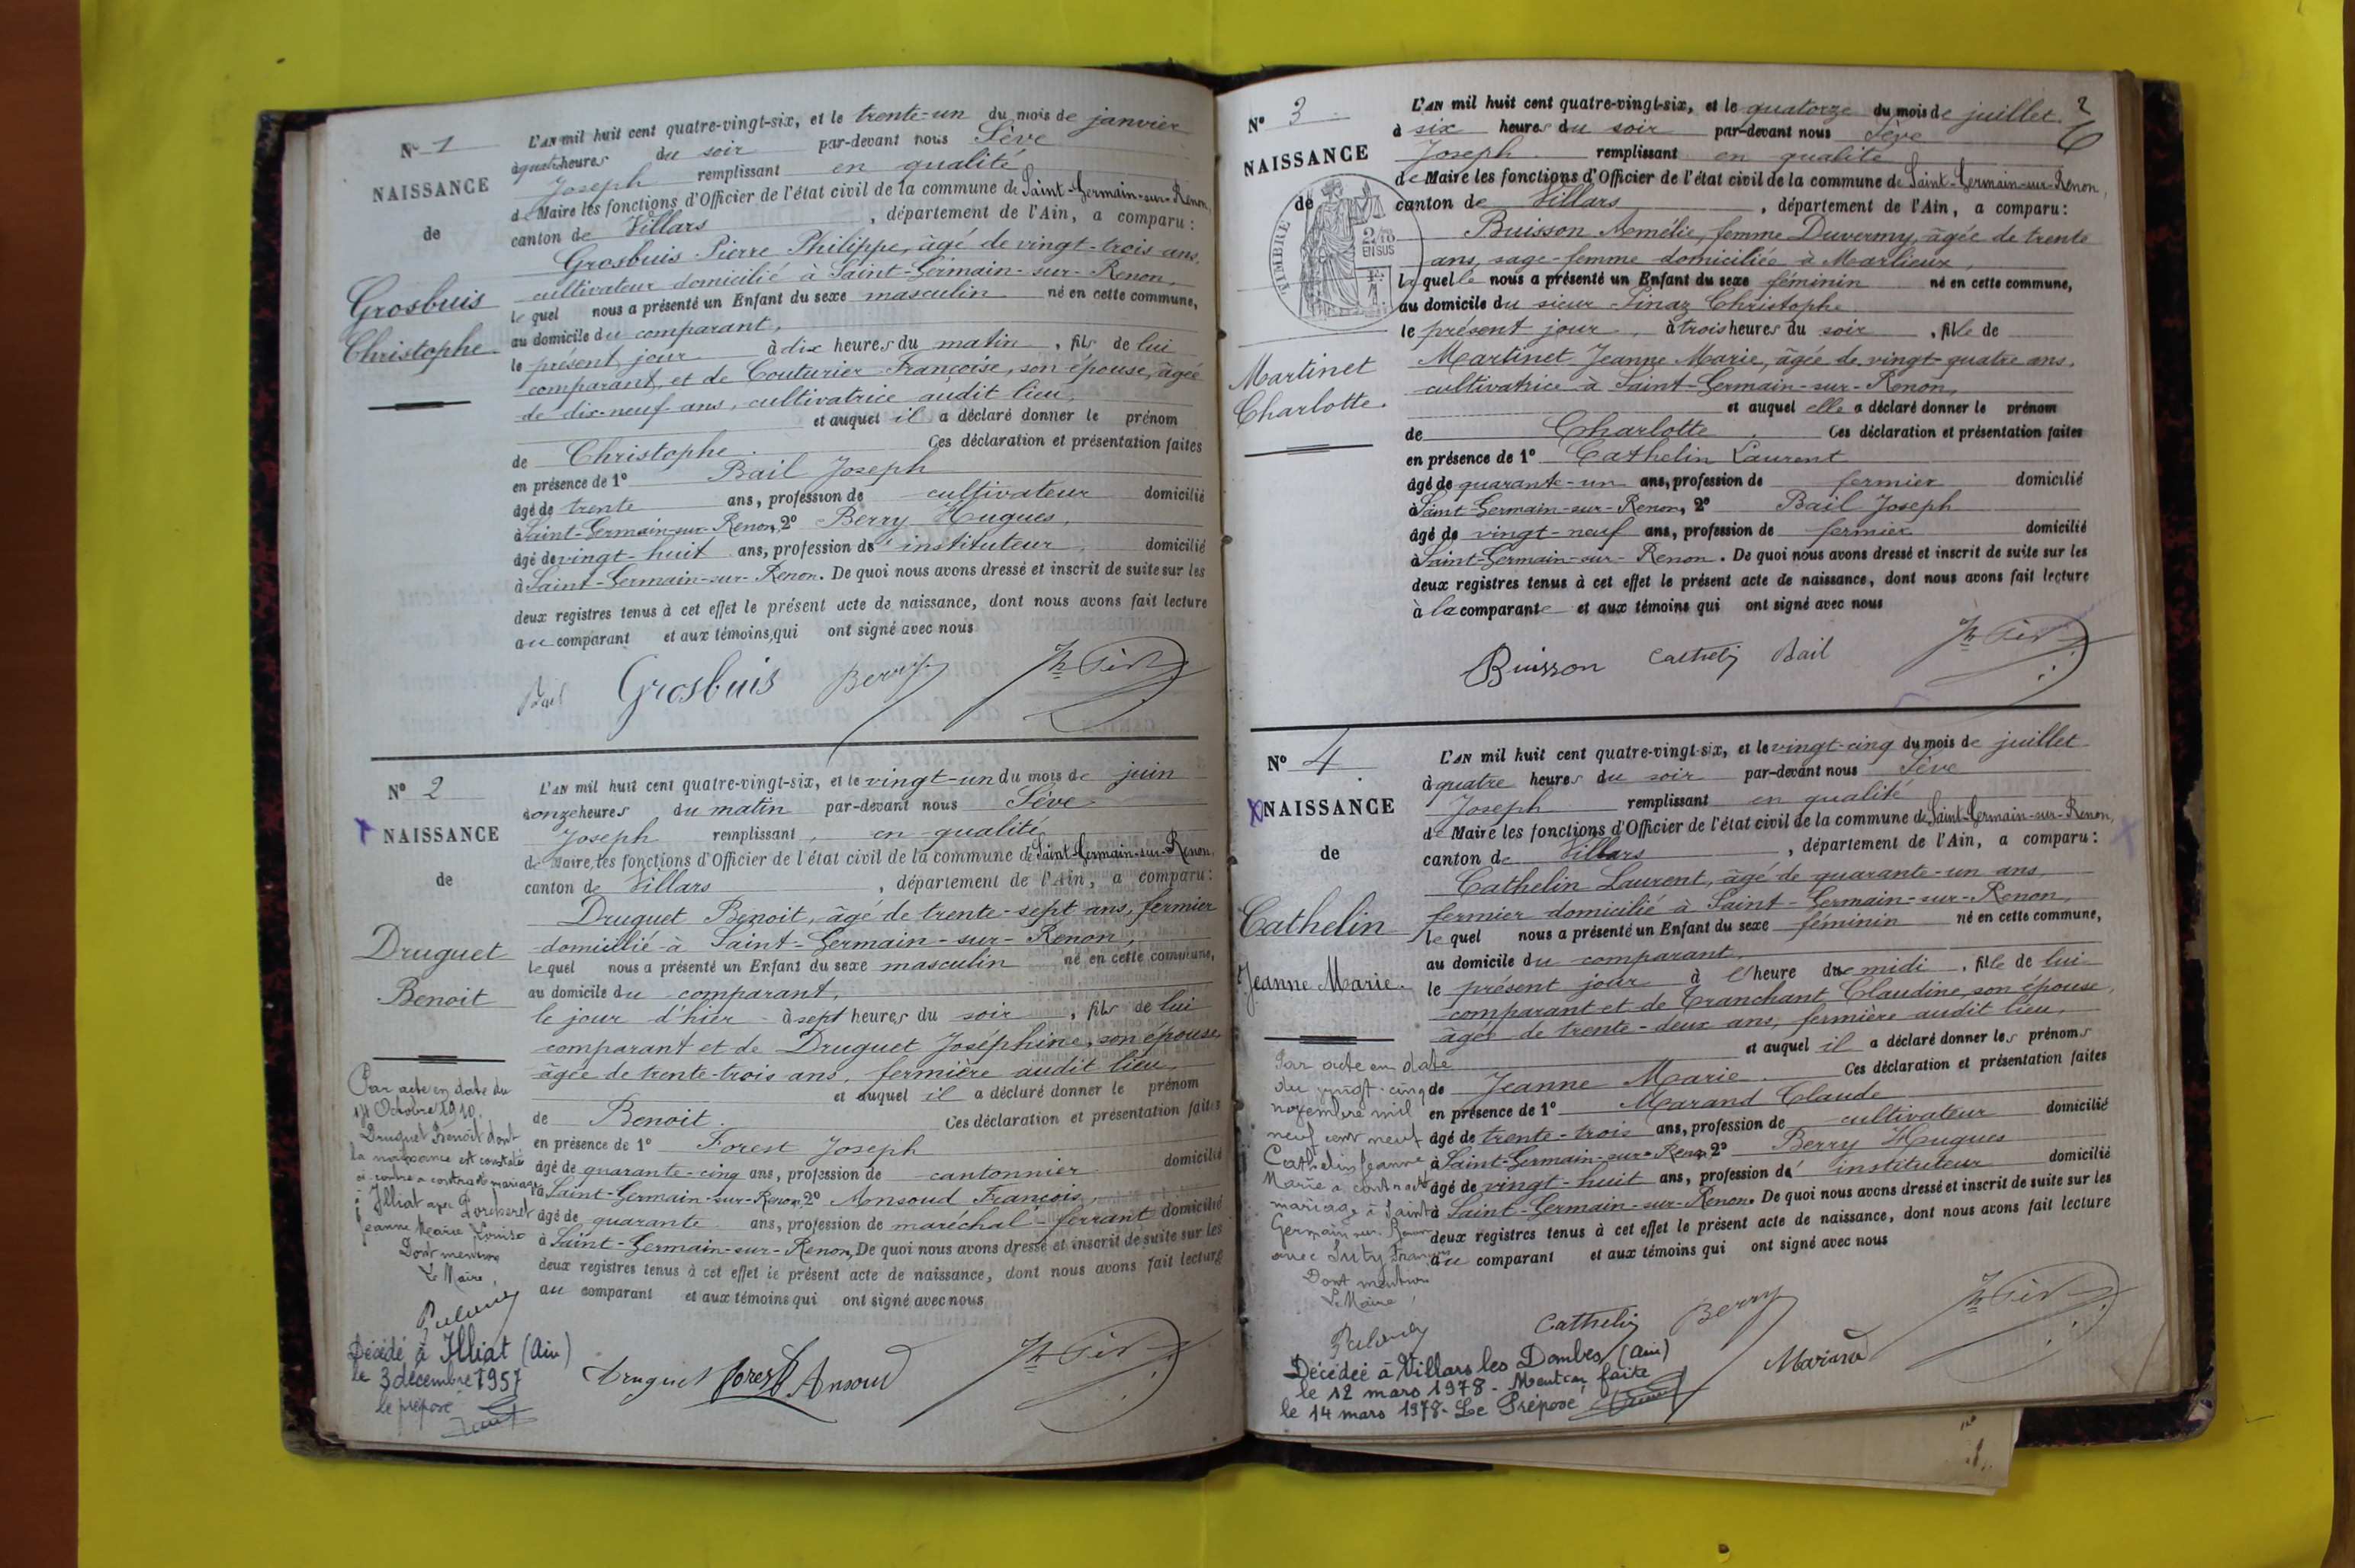 N° 1
NAISSANCE
de
Grosbuis
Christophe
L'AN mil huit cent quatre-vingt-six, et le trente-un du mois de janvier
à quatre heures du soir par-devant nous Sève
Joseph remplissant en qualité
de Maire les fonctions d'Officier de l'état civil de la commune de Saint-Germain-sur-Renon,
canton de Villars, département de l'Ain, a comparu :
Grosbuis Pierre Philippe, âgé de vingt-trois ans,
cultivateur domicilié à Saint-Germain-sur-Renon,
lequel nous a présenté un Enfant du sexe masculin né en cette commune,
au domicile du comparant,
le présent jour à dix heures du matin, fils de lui
comparant, et de Couturier Françoise, son épouse, âgée
de dix-neuf ans, cultivatrice audit lieu,
et auquel il a déclaré donner le prénom
de Christophe. Ces déclaration et présentation faites
en présence de 1° Bail Joseph
âgé de trente ans, profession de cultivateur domicilié
à Saint-Germain-sur-Renon, 2° Berry Hugues,
âgé de vingt-huit ans, profession de instituteur, domicilié
à Saint-Germain-sur-Renon. De quoi nous avons dressé et inscrit de suite sur les
deux registres tenus à cet effet le présent acte de naissance, dont nous avons fait lecture
au comparant et aux témoins, qui ont signé avec nous
Bail Grosbuis Berry
N° 2
NAISSANCE
de
Druguet
Benoit
L'AN mil huit cent quatre-vingt-six, et le vingt-un du mois de juin
à onze heures du matin par-devant nous Sève
Joseph remplissant en qualité
de Maire, les fonctions d'Officier de l'état civil de la commune de Saint-Germain-sur-Renon,
canton de Villars, département de l'Ain, a comparu :
Druguet Benoit, âgé de trente-sept ans, fermier
domicilié à Saint-Germain-sur-Renon,
lequel nous a présenté un Enfant du sexe masculin né en cette commune,
au domicile du comparant,
le jour d'hier à sept heures du soir, fils de lui
comparant et de Druguet Joséphine, son épouse,
âgée de trente-trois ans, fermière audit lieu,
et auquel il a déclaré donner le prénom
de Benoit. Ces déclaration et présentation faites
en présence de 1° Forest Joseph
âgé de quarante-cinq ans, profession de cantonnier domicilié
à Saint-Germain-sur-Renon, 2° Ansoud François
âgé de quarante ans, profession de maréchal-ferrant domicilié
à Saint-Germain-sur-Renon, De quoi nous avons dressé et inscrit de suite sur les
deux registres tenus à cet effet le présent acte de naissance, dont nous avons fait lecture
au comparant et aux témoins qui ont signé avec nous
Druguet Forest Ansoud
Par acte en date du
Octobre 1910,
Druguet Benoît dont
la naissance est constatée
ci-contre a contracté mariage
à Illiat avec
Jeanne Marie Louise
Dont mention
Le Maire,
Décédé à Illiat (Ain)
le 3 décembre 1957
le préposé
2
N° 3
NAISSANCE
de
TIMBRE
2/10
EN SUS
Martinet
Charlotte.
L'AN mil huit cent quatre-vingt-six, et le quatorze du mois de juillet
à six heures du soir par-devant nous Sève
Joseph remplissant en qualité
de Maire les fonctions d'Officier de l'état civil de la commune de Saint-Germain-sur-Renon,
canton de Villars, département de l'Ain, a comparu :
Buisson Amélie, femme Duvermy, âgée de trente
ans, sage-femme domiciliée à Marlieux,
laquelle nous a présenté un Enfant du sexe féminin né en cette commune,
au domicile du sieur Sinaz Christophe
le présent jour, à trois heures du soir, fille de
Martinet Jeanne Marie, âgée de vingt-quatre ans,
cultivatrice à Saint-Germain-sur-Renon,
et auquel elle a déclaré donner le prénom
de Charlotte. Ces déclaration et présentation faites
en présence de 1° Cathelin Laurent
âgé de quarante-un ans, profession de fermier domicilié
à Saint-Germain-sur-Renon, 2° Bail Joseph
âgé de vingt-neuf ans, profession de fermier domicilié
à Saint-Germain-sur-Renon. De quoi nous avons dressé et inscrit de suite sur les
deux registres tenus à cet effet le présent acte de naissance, dont nous avons fait lecture
à la comparante et aux témoins qui ont signé avec nous
Buisson Cathelin Bail
N° 4
NAISSANCE
de
Cathelin
Jeanne Marie.
L'AN mil huit cent quatre-vingt-six, et le vingt-cinq du mois de juillet
à quatre heures du soir par-devant nous Sève
Joseph remplissant en qualité
de Maire les fonctions d'Officier de l'état civil de la commune de Saint-Germain-sur-Renon,
canton de Villars, département de l'Ain, a comparu :
Cathelin Laurent, âgé de quarante-un ans,
fermier domicilié à Saint-Germain-sur-Renon,
lequel nous a présenté un Enfant du sexe féminin né en cette commune,
au domicile du comparant,
le présent jour à l'heure de midi, fille de lui
comparant et de Tranchant Claudine, son épouse,
âgée de trente-deux ans, fermière audit lieu,
et auquel il a déclaré donner les prénoms
de Jeanne Marie. Ces déclaration et présentation faites
en présence de 1° Marand Claude
âgé de trente-trois ans, profession de cultivateur domicilié
à Saint-Germain-sur-Renon, 2° Berry Hugues
âgé de vingt-huit ans, profession de instituteur domicilié
à Saint-Germain-sur-Renon. De quoi nous avons dressé et inscrit de suite sur les
deux registres tenus à cet effet le présent acte de naissance, dont nous avons fait lecture
au comparant et aux témoins qui ont signé avec nous
Cathelin Berry
Marand
Par acte en date
du vingt-cinq
novembre mil
neuf cent neuf
Cathelin Jeanne
Marie a contracté
mariage à Saint
Germain sur Renon
avec
Dont mention
Le Maire,
Décédée à Villars les Dombes (Ain)
le 12 mars 1978 - Mention faite
le 14 mars 1978 - Le Préposé